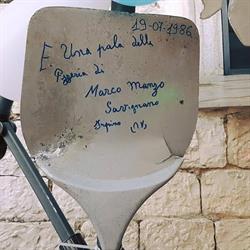 19-07-1986
È Una pala della
Pizzeria di
Marco Manzo
Savignano
Irpino (AV)